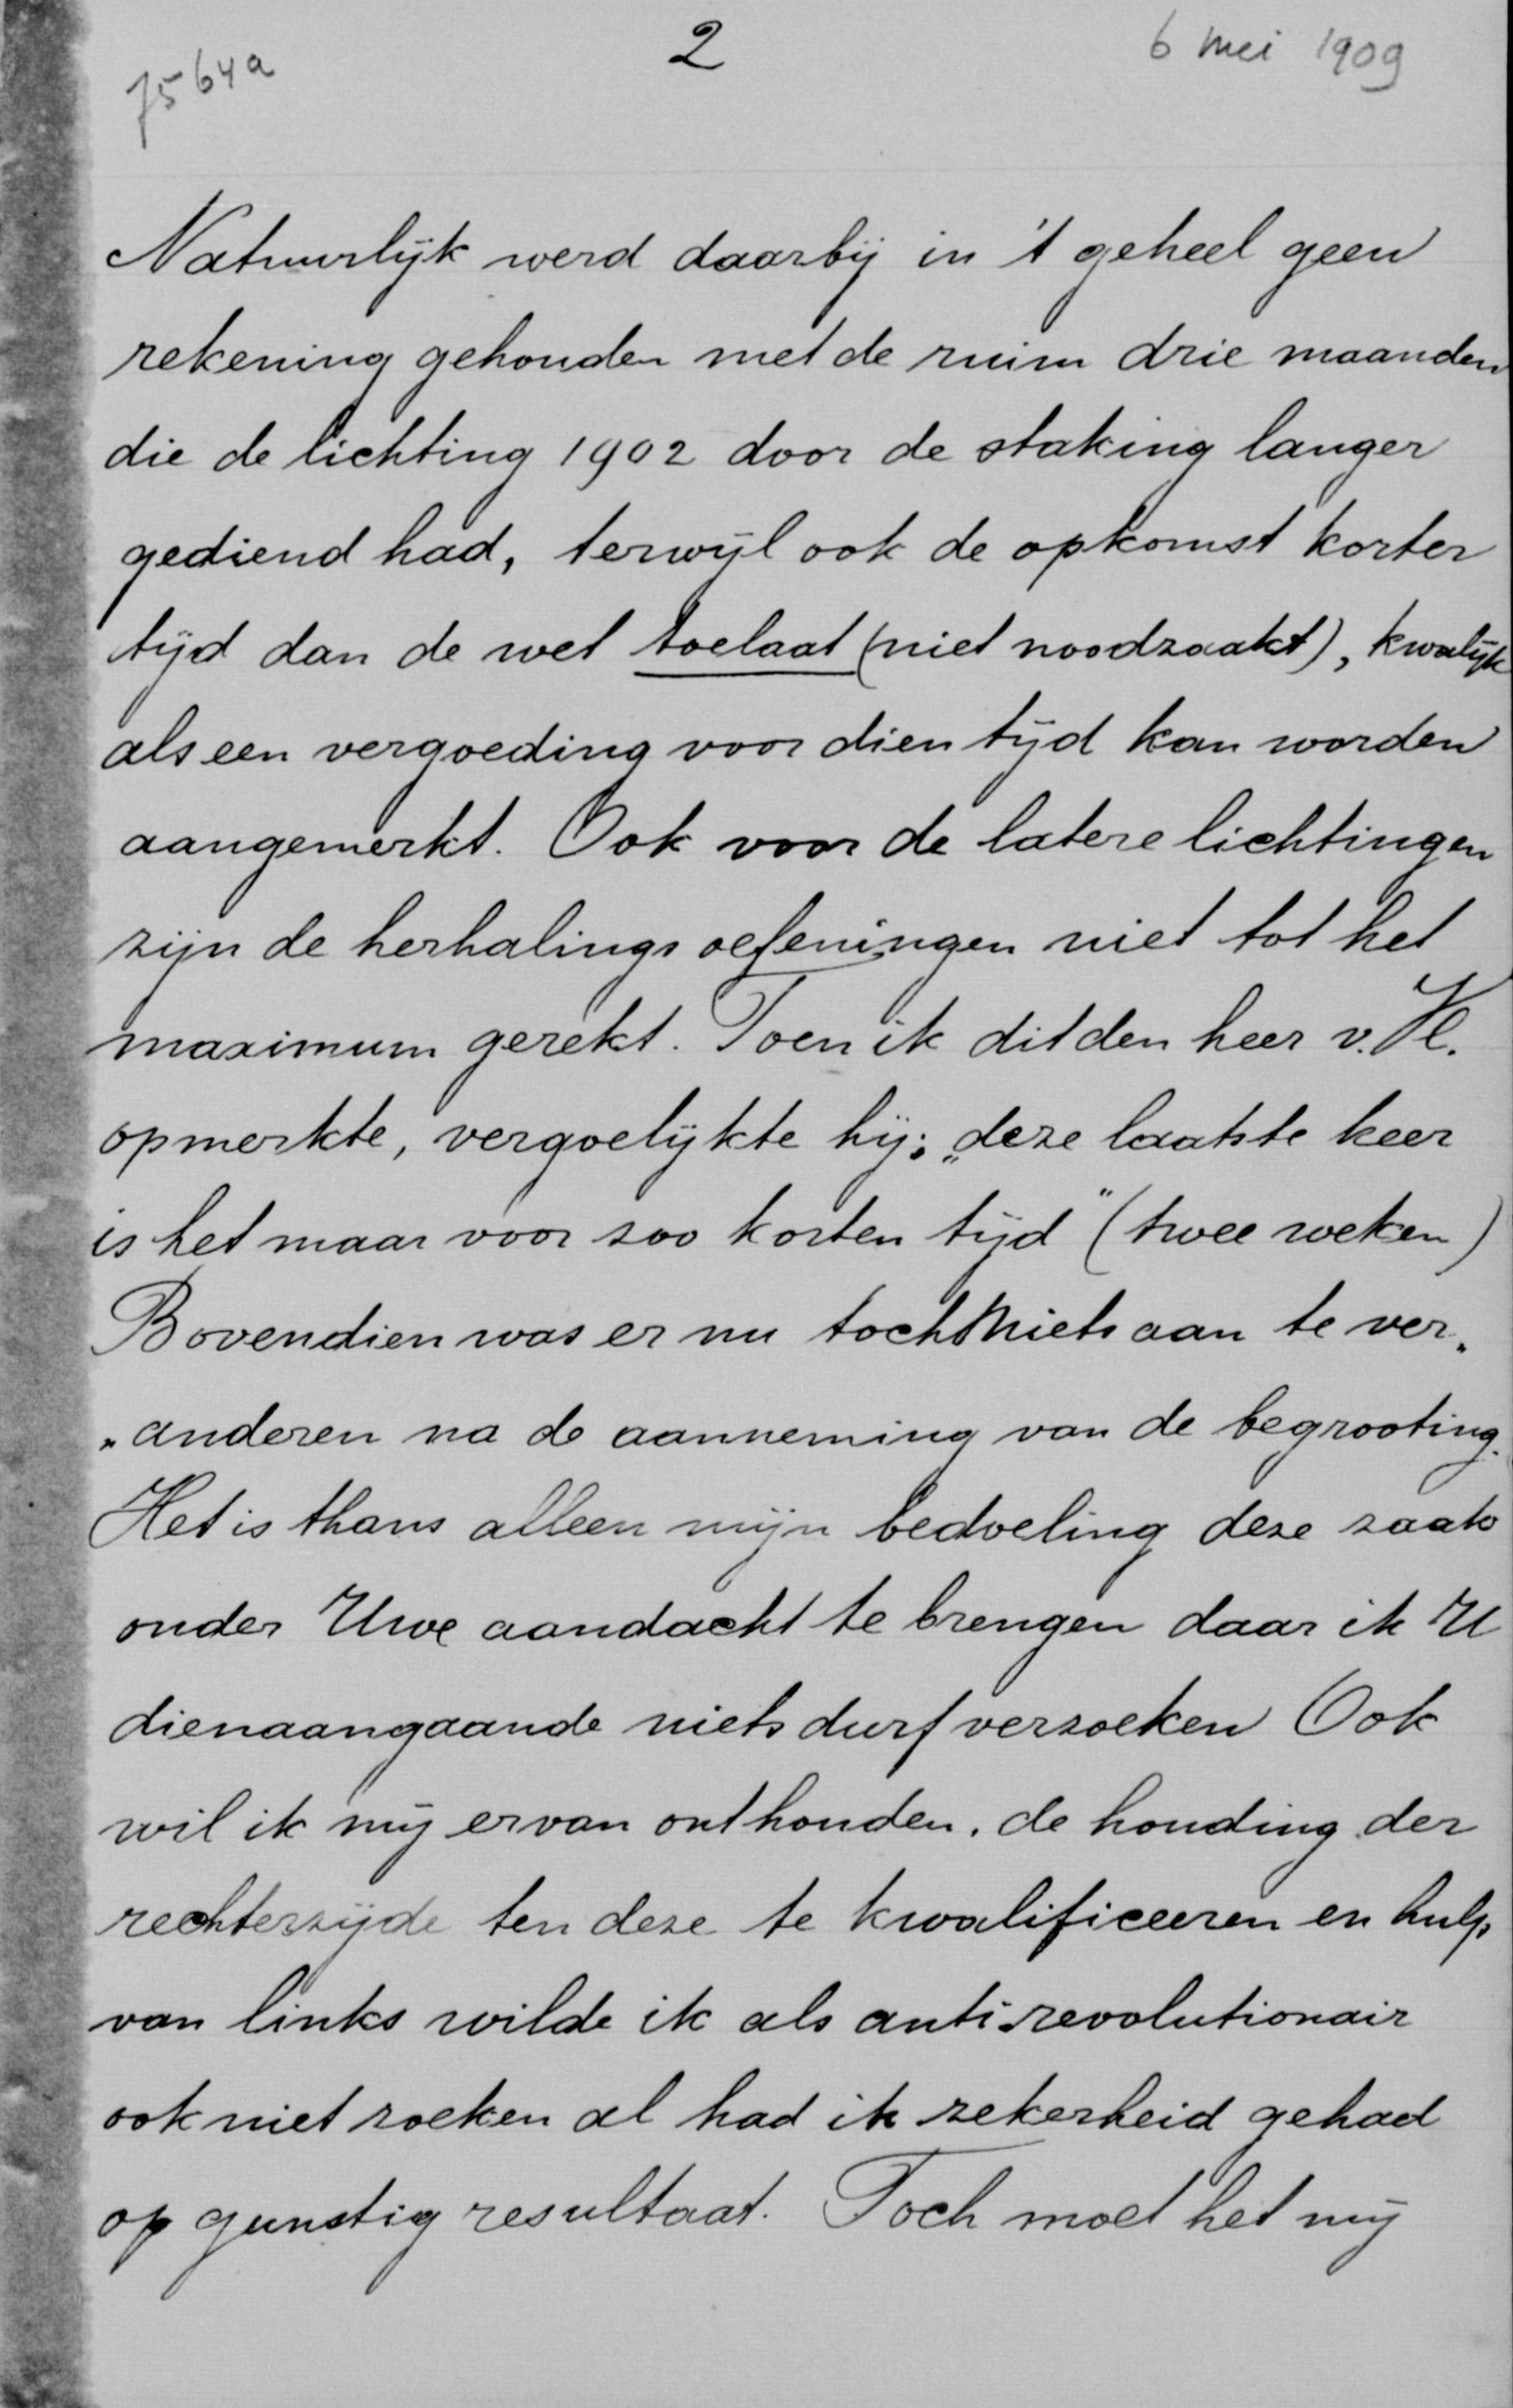 7564a
2
6 mei 1909
Natuurlijk werd daarbij in 't geheel geen
rekening gehouden met de ruim drie maanden
die de lichting 1902 door de staking langer
gediend had, terwijl ook de opkomst korter
tijd dan de wet toelaat (niet noodzaakt), kwalijk
als een vergoeding voor dien tijd kan worden
aangemerkt. Ook voor de latere lichtingen
zijn de herhalings oefeningen niet tot het
maximum gerekt. Toen ik dit den heer v. Vl.
opmerkte, vergoelijkte hij: „deze laatste keer
is het maar voor zoo korten tijd" (twee weken)
Bovendien was er nu toch niets aan te ver„
„anderen na de aanneming van de begrooting.
Het is thans alleen mijn bedoeling deze zaak
onder Uwe aandacht te brengen daar ik U
dienaangaande niets durf verzoeken Ook
wil ik mij ervan onthouden, de houding der
rechterzijde ten deze te kwalificeeren en hulp
van links wilde ik als anti-revolutionair
ook niet zoeken al had ik zekerheid gehad
op gunstig resultaat. Toch moet het mij